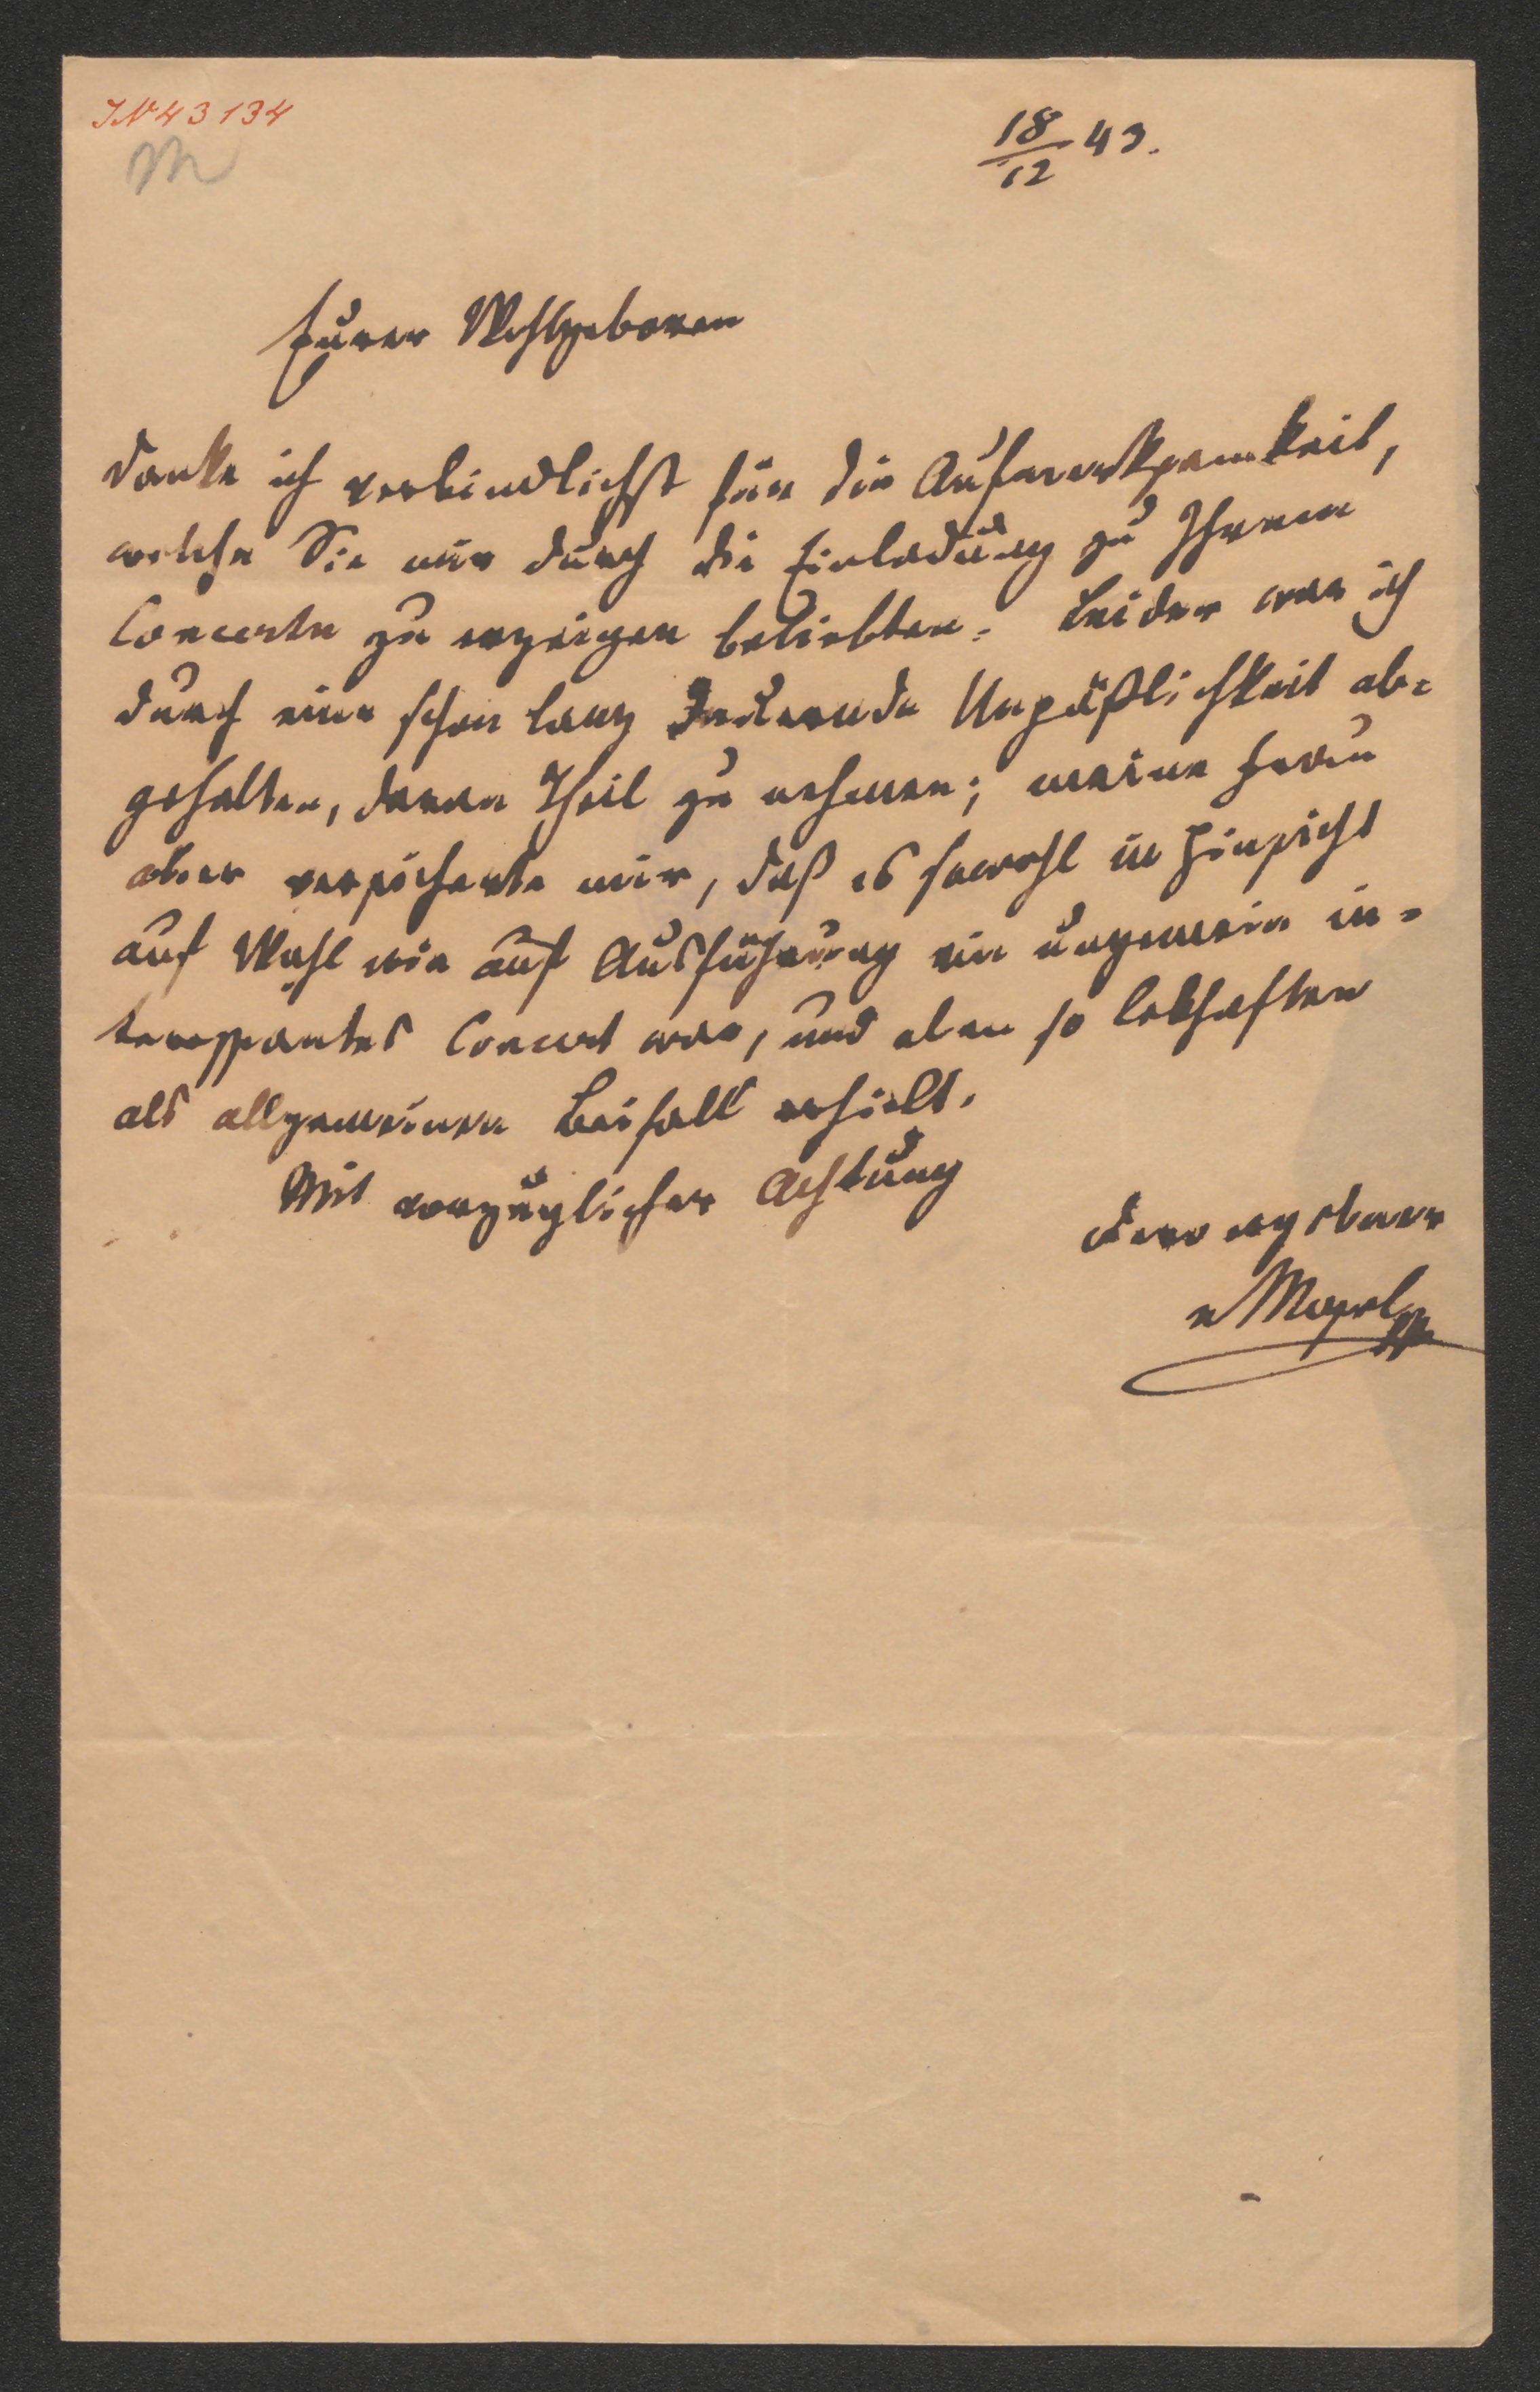 IN 43134
18/12 43.
M
Eurer Wohlgeboren
danke ich verbindlichst für die Aufmerksamkeit,
welche Sie mir durch die Einladung zu Ihrem
Concerte zu erzeigen beliebten. Leider war ich
durch eine schon lang dauernde Unpäßlichkeit ab-
gehalten, daran Theil zu nehmen; meine Frau
aber versicherte mir, daß es sowohl in Hinsicht
auf Wahl wie auf Ausführung ein ungemein in-
teressantes Concert war, und eben so lebhaften
als allgemeinen Beifall erhielt.
Mit vorzüglicher Achtung
Dero ergebener
v Mosel